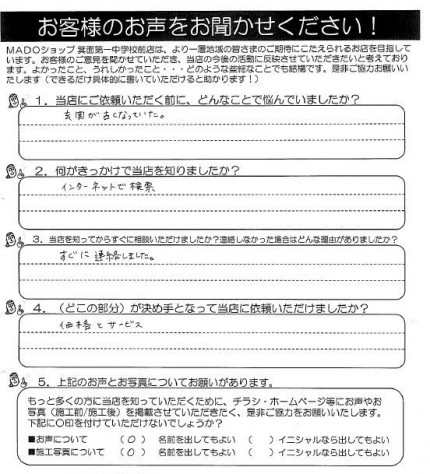 お客様のお声をお聞かせください!
MADOショップ 箕面第一中学校前店は、より一層地域の皆さまのご期待にこたえられるお店を目指して
います。お客様のご意見を聞かせていただき、当店の今後の活動に反映させていただきたいと考えており
ます。よかったこと、うれしかったこと・・・どのような些細なことでも結構です。是非ご協力お願いい
たします(できるだけ具体的に書いていただけると助かります!)
1.当店にご依頼いただく前に、どんなことで悩んでいましたか?
玄関が古くなっていた。
2.何がきっかけで当店を知りましたか?
インターネットで検索
3.当店を知ってからすぐに相談いただけましたか?連絡しなかった場合はどんな理由がありましたか?
すぐに連絡しました。
4.(どこの部分)が決め手となって当店に依頼いただけましたか?
価格とサービス
5.上記のお声とお写真についてお願いがあります。
もっと多くの方に当店を知っていただくために、チラシ・ホームページ等にお声やお
写真(施工前/施工後)を掲載させていただきたく、是非ご協力をお願いいたします。
下記に〇印を付けていただけないでしょうか?
■お声について (〇) 名前を出してもよい ( ) イニシャルなら出してもよい
■施工写真について (〇) 名前を出してもよい ( ) イニシャルなら出してもよい